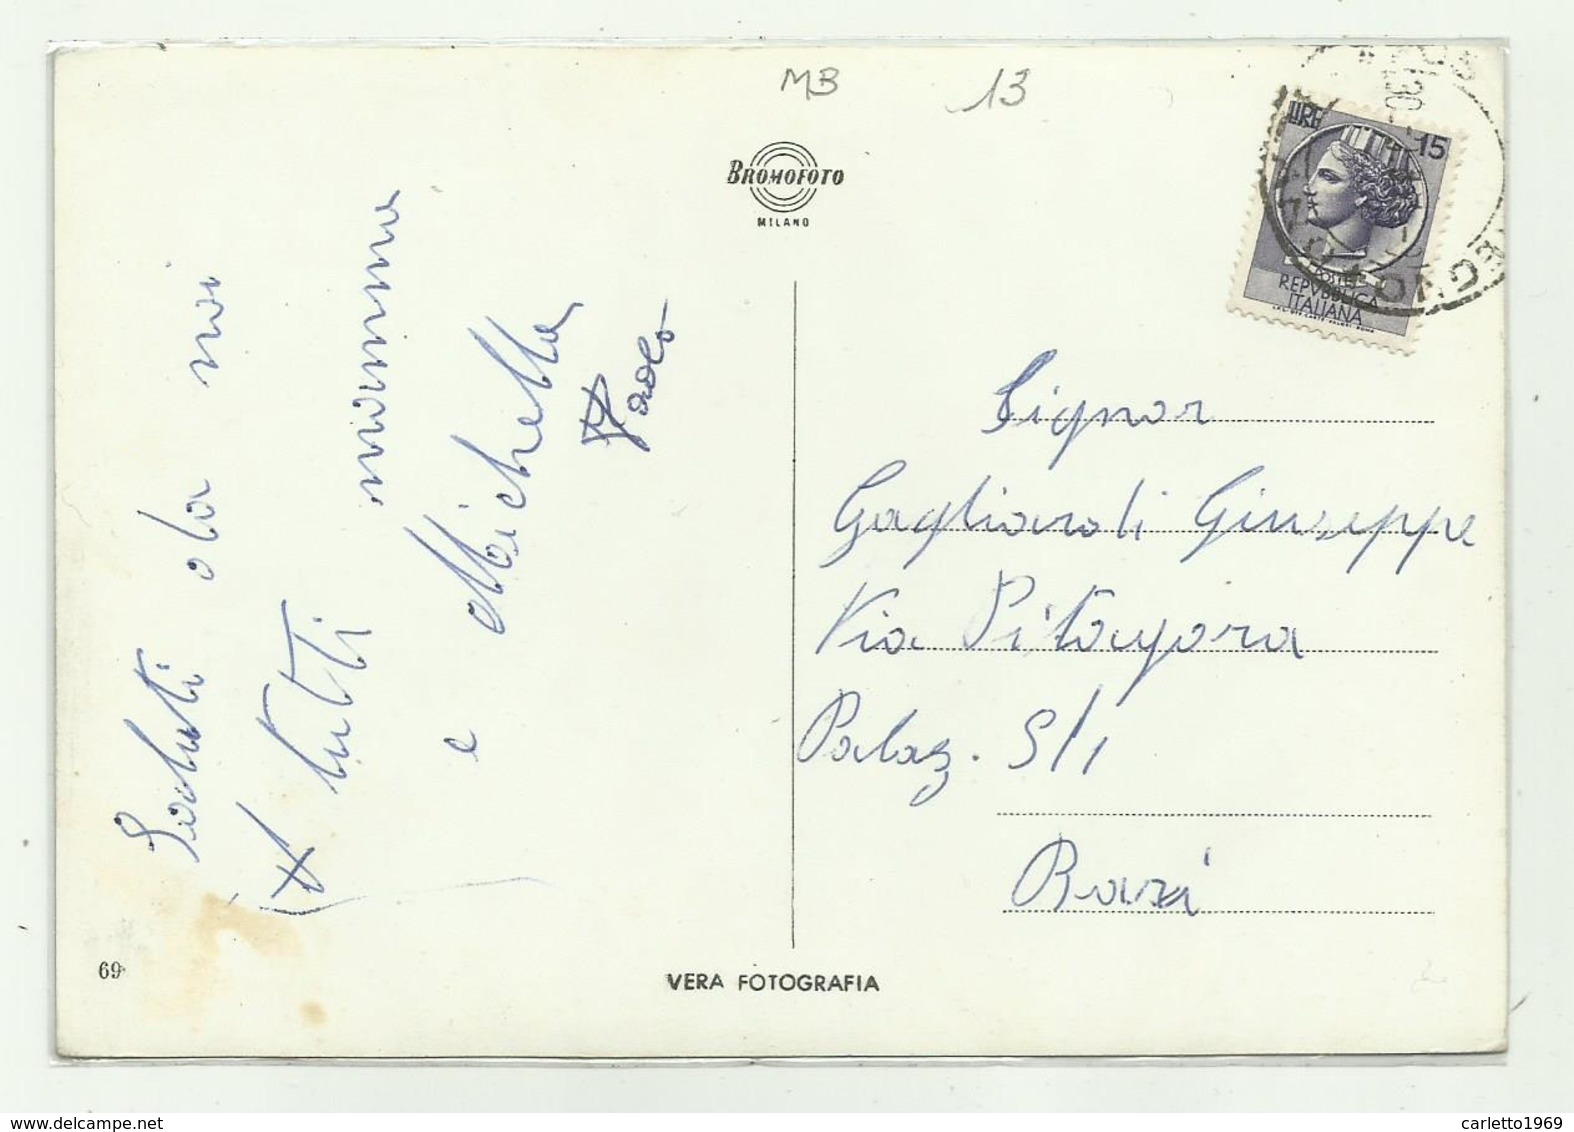 MB 13
BROMOFOTO
MILANO
LIRE 15
POSTE
REPVBBLICA
ITALIANA
Saluti da noi
A tutti
mamma
e Michella
Paolo
Signor
Gagliardi Giuseppe
Via Pitagora
Palaz. S/1
Bari
69
VERA FOTOGRAFIA
delcampe.net
carletto1969